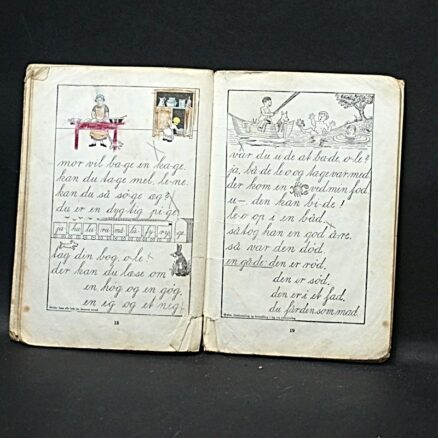 mor vil ba-ge en ka-ge.
kan du ta-ge mel, le-ne.
kan du så sø-ge æg?
du er en dyg-tig pi-ge.
ja ha lu ru mi la fy ry ge
tag den bog, o-le!
der kan du læse om
en høg og en gøg,
en eg og et neg!
18
var du u-de at ba-de, o-le?
ja, bå-de le-o og tage var med.
der kom en ved min fod
u- den kan bi-de!
le-o op i en båd,
så tog han en god å-re.
så var den død.
en gå-de: den er rød,
den er sød,
den er i et fad,
du får den som mad.
19